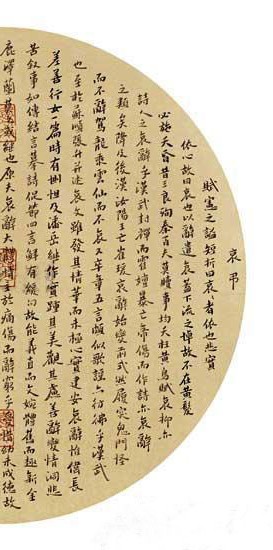 哀弔
賦憲之謚短折曰哀々者依也悲實
依心故曰哀也以辭遣哀蓋下流之悼故不在黃髮
必施夭昏昔三良殉秦百夫莫贖事均夭枉黃鳥賦哀抑亦
詩人之哀辭乎漢武封禪而霍嬗暴亡帝傷而作詩亦哀辭
之類矣降及後漢汝陽王亡崔瑗哀辭始變前式然履突鬼門怪
而不辭駕龍乘雲仙而不哀又卒章五言頗似歌謠亦彷彿乎漢武
也至於蘇順張升并述哀文雖發其情華而未極心實建安哀辭惟偉長
差善行女一篇時有惻怛及潘岳繼作實踵其美觀其慮善辭變情洞悲
苦敘事如傳結言摹詩促節四言鮮有緩句故能義直而文婉體舊而趣新金
鹿澤蘭莫之或繼也原夫哀辭大體情主於痛傷而辭窮乎愛惜幼未成德故